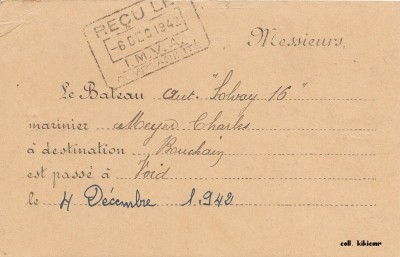 REÇU LE
-6 DEC 1942
I.M.V.A.
COMPTABILITÉ
Messieurs,
Le Bateau aut. "Solvay 16"
marinier Meyer Charles
à destination Bouchain
est passé à Void
le 4 Décembre 1942
coll. kikicmr